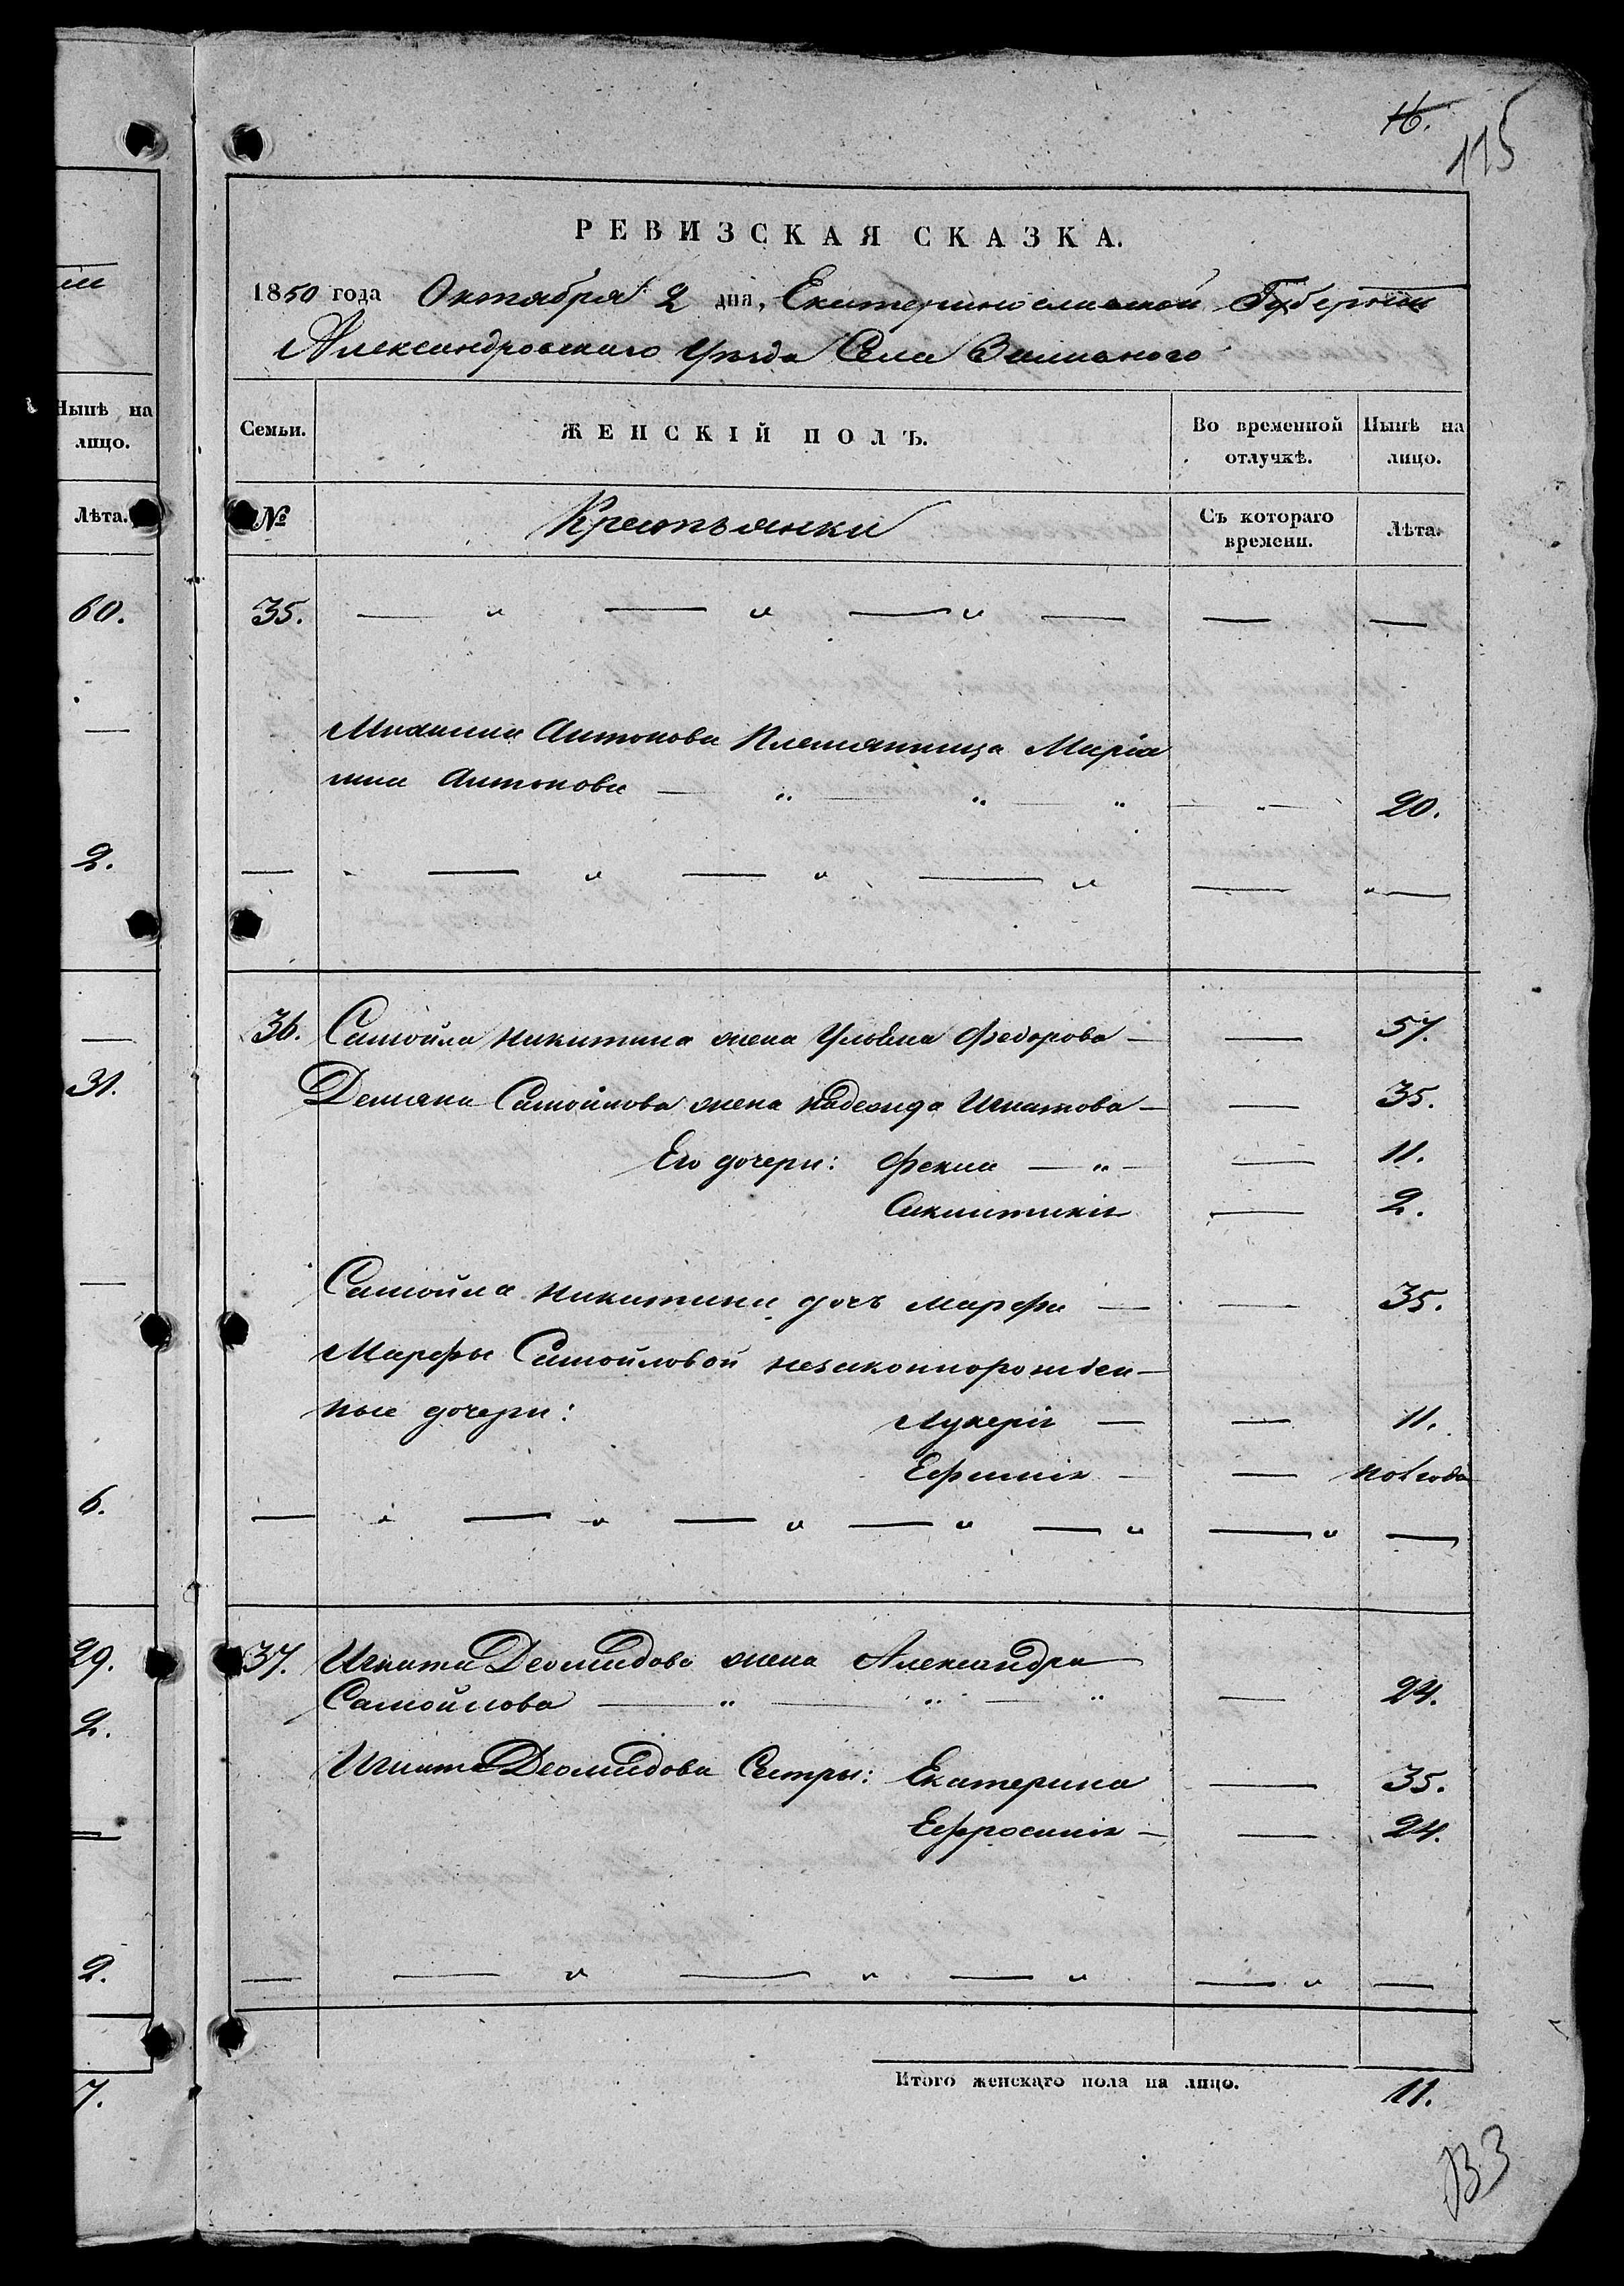 16.
115
РЕВИЗСКАЯ СКАЗКА.
1850 года Октября 2 дня, Екатеринославской Губернии
Александровскаго Уѣзда Села
Семьи.
ЖЕНСКІЙ ПОЛЪ.
Во временной отлучкѣ.
Нынѣ на лицо.
№
Крестьянки
Съ котораго времени.
Лѣта.
35. — „ — „ — „ — — —
Михаила Антонова Племянница Марія
Антонова — „ — „ — „ — „ — 20.
— — „ — „ — „ — „ —
36. Самойла Никитина жена Ульяна Федорова — — 57.
Демяна Самойлова жена Надежда Игнатова — — 35.
Его дочери: Фекла — „ — — 11.
— 2.
Самойла Никитина дочь Марфа — — 35.
Марфы Самойловой незаконнорожден-
ные дочери: Лукерія — — 11.
Ефимія — — пол года
— „ — „ — „ — „ — „ — „ —
37. Игната Деомидова жена Александра
Самойлова — „ — „ — „ — 24.
Игната Деомидова Сестры: Екатерина — 35.
Ефросинія — — 24.
— — „ — „ — „ — „ —
Итого женскаго пола на лицо. 11.
Нынѣ на
лицо.
Лѣта.
60.
—
2.
—
31.
—
6.
29.
2.
—
2.
7.